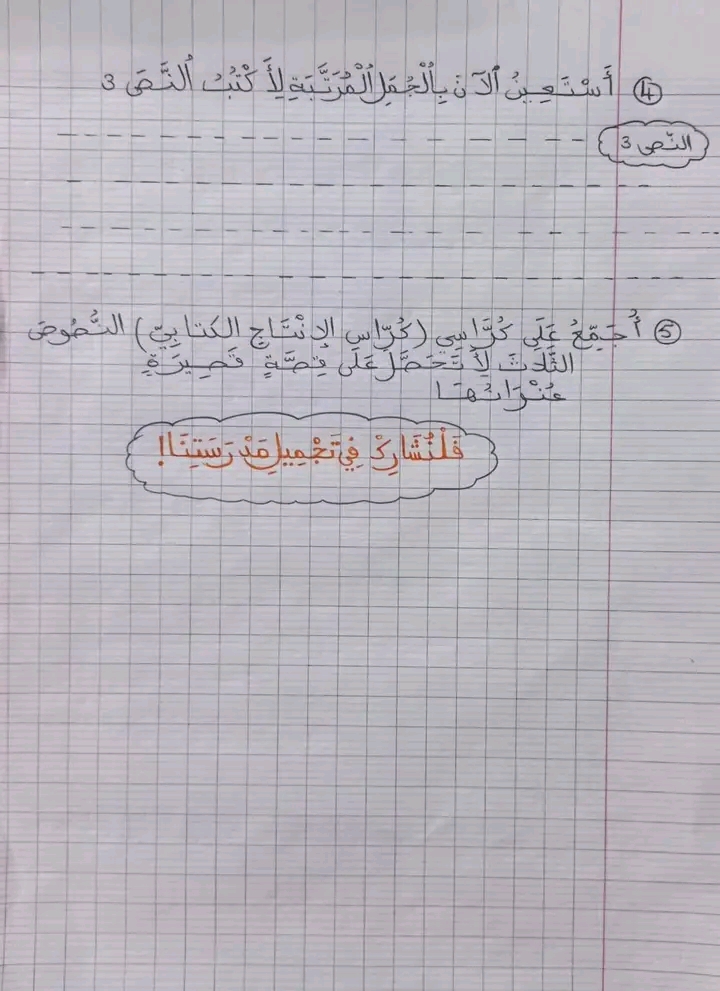 ④ أَسْتَعِينُ ٱلآنَ بِٱلْجُمَلِ ٱلْمُرَتَّبَةِ لِأَكْتُبُ ٱلنَّصَ 3
النّص 3
⑤ أُجَمِّعُ عَلَى كُرَّاسِي (كُرَّاس الإنْتَاج الكتابِيّ) النُّصُوصَ
الثَّلَاثَ لِأَتَحَصَّلَ عَلَى قِصَّةٍ قَصِيرَةٍ
عُنْوَانُهَا
فَلْنُشَارِكْ فِي تَجْمِيلِ مَدْرَسَتِنَا!